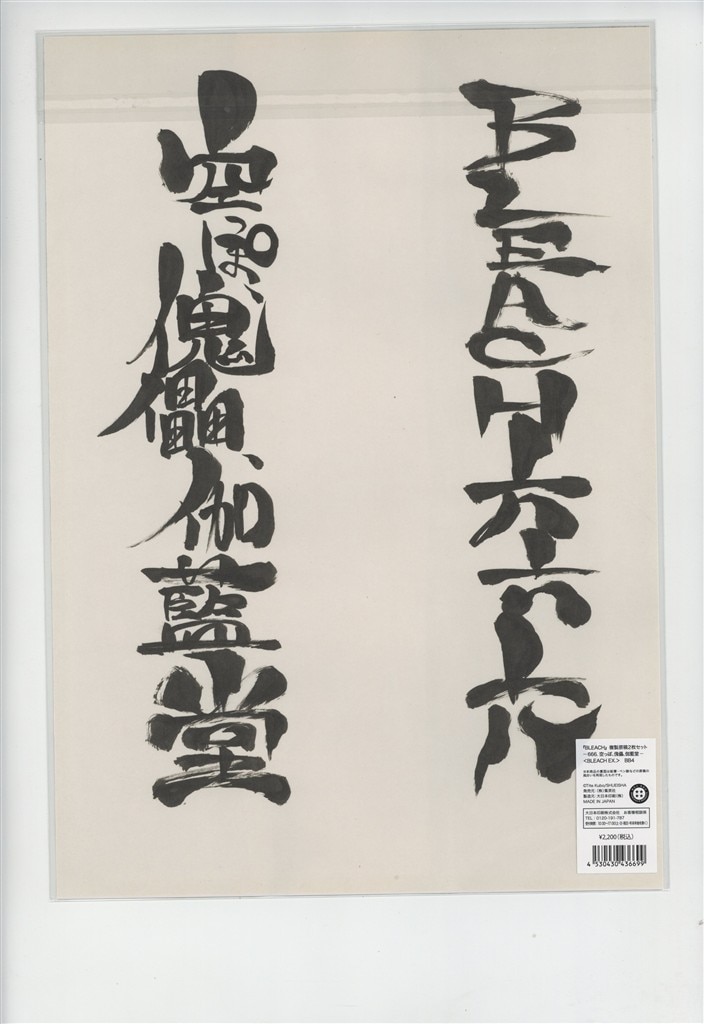 BLEACH六六六
空っぽ、傀儡、伽藍堂
『BLEACH』 複製原稿2枚セット
－666. 空っぽ、傀儡、伽藍堂－
＜BLEACH EX.＞ BB4
©Tite Kubo/SHUEISHA
発売元:(株)集英社
製造元:大日本印刷(株)
MADE IN JAPAN
大日本印刷株式会社 お客様相談室
TEL:0120-191-787
¥2,200(税込)
4 530430 436699